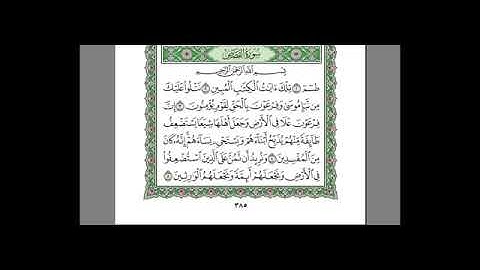 سورة القصص
بسم الله الرحمن الرحيم
طسٓمٓ ۝١ تِلْكَ ءَايَٰتُ ٱلْكِتَٰبِ ٱلْمُبِينِ ۝٢ نَتْلُوا۟ عَلَيْكَ
مِن نَّبَإِ مُوسَىٰ وَفِرْعَوْنَ بِٱلْحَقِّ لِقَوْمٍ يُؤْمِنُونَ ۝٣ إِنَّ
فِرْعَوْنَ عَلَا فِى ٱلْأَرْضِ وَجَعَلَ أَهْلَهَا شِيَعًا يَسْتَضْعِفُ
طَآئِفَةً مِّنْهُمْ يُذَبِّحُ أَبْنَآءَهُمْ وَيَسْتَحْىِۦ نِسَآءَهُمْ إِنَّهُۥ كَانَ
مِنَ ٱلْمُفْسِدِينَ ۝٤ وَنُرِيدُ أَن نَّمُنَّ عَلَى ٱلَّذِينَ ٱسْتُضْعِفُوا۟
فِى ٱلْأَرْضِ وَنَجْعَلَهُمْ أَئِمَّةً وَنَجْعَلَهُمُ ٱلْوَٰرِثِينَ ۝٥
٣٨٥